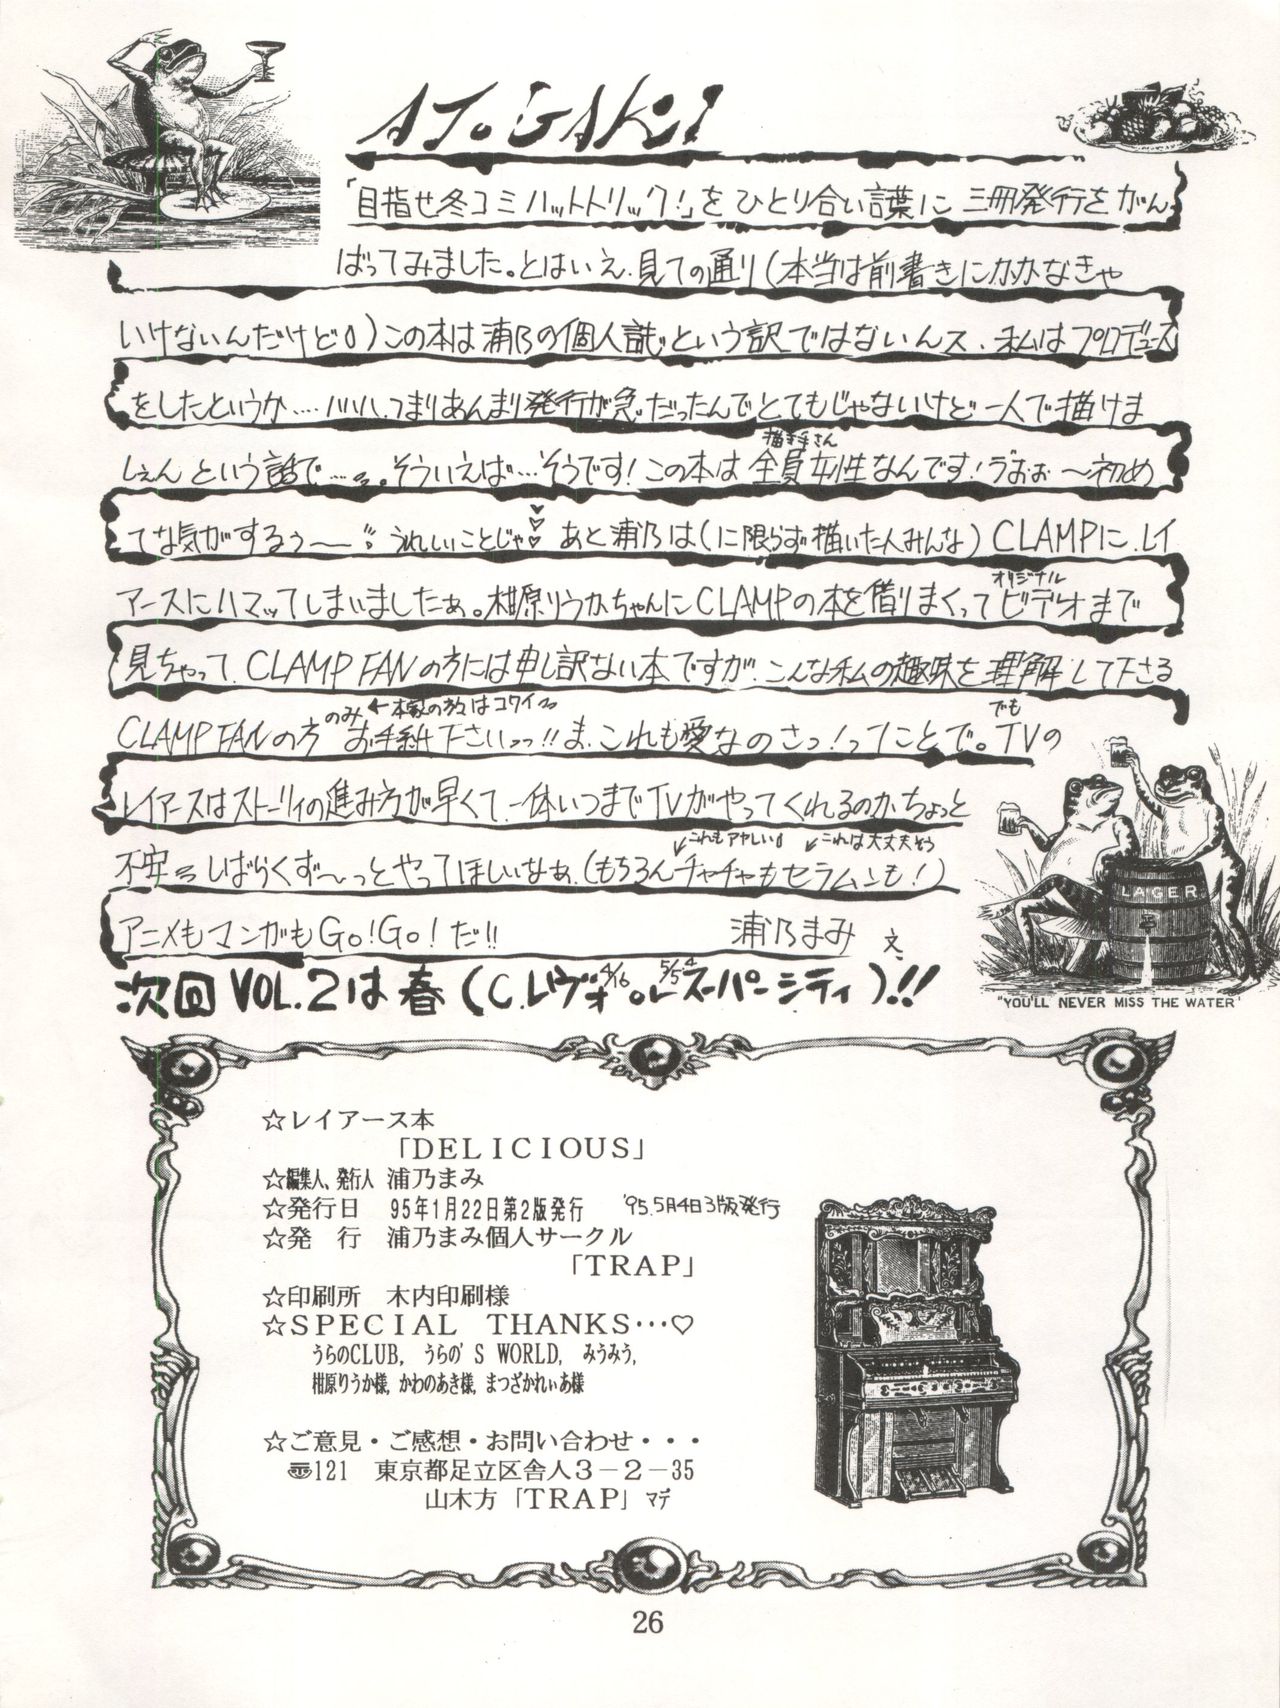 ATOGAKI
「目指せ冬コミハットトリック!」をひとり合い言葉に三冊発行をがん
ばってみました。とはいえ、見ての通り(本当は前書きにかかなきゃ
いけないんだけど)この本は浦乃の個人誌という訳ではないんス、私はプロデュース
をしたというか…ハハハ、つまりあんまり発行が急だったんでとてもじゃないけど一人で描けま
しぇんという話で…。そういえば…そうです!この本は全員女性なんです!うおぉ〜初め
描き手さん
てな気がするぅ〜うれしいことじゃ♡♡あと浦乃は(に限らず描いた人みんな)CLAMPに、レイ
アースにハマってしまいましたぁ。柑原りうかちゃんにCLAMPの本を借りまくってビデオまで
オリジナル
見ちゃって、CLAMP FANの方には申し訳ない本ですが、こんな私の趣味を理解して下さる
CLAMP FANの方お手紙下さいっっ!!ま、これも愛なのさっ!ってことで。TVの
のみ←本家の方はコワイ
でも
レイアースはストーリィの進み方が早くて、一体いつまでTVがやってくれるのか、ちょっと
不安 しばらくず〜っとやってほしいなぁ、(もちろんチャチャもセラムンも!)
これもアヤしい
これは大丈夫そう
アニメもマンガもGo!Go!だ!! 浦乃まみ 文
次回VOL.2は春(C.レヴォ 4/16 or 5/5 4 スーパーシティ)!!
LAGER
"YOU'LL NEVER MISS THE WATER"
☆レイアース本
「DELICIOUS」
☆編集人、発行人 浦乃まみ
☆発行日 95年1月22日第2版発行 '95.5月4日3版発行
☆発 行 浦乃まみ個人サークル
「TRAP」
☆印刷所 木内印刷様
☆SPECIAL THANKS…♡
うらのCLUB, うらの'S WORLD, みうみう,
柑原りうか様, かわのあき様, まつざかれぃあ様
☆ご意見・ご感想・お問い合わせ・・・
〠121 東京都足立区舎人3-2-35
山木方「TRAP」マデ
26